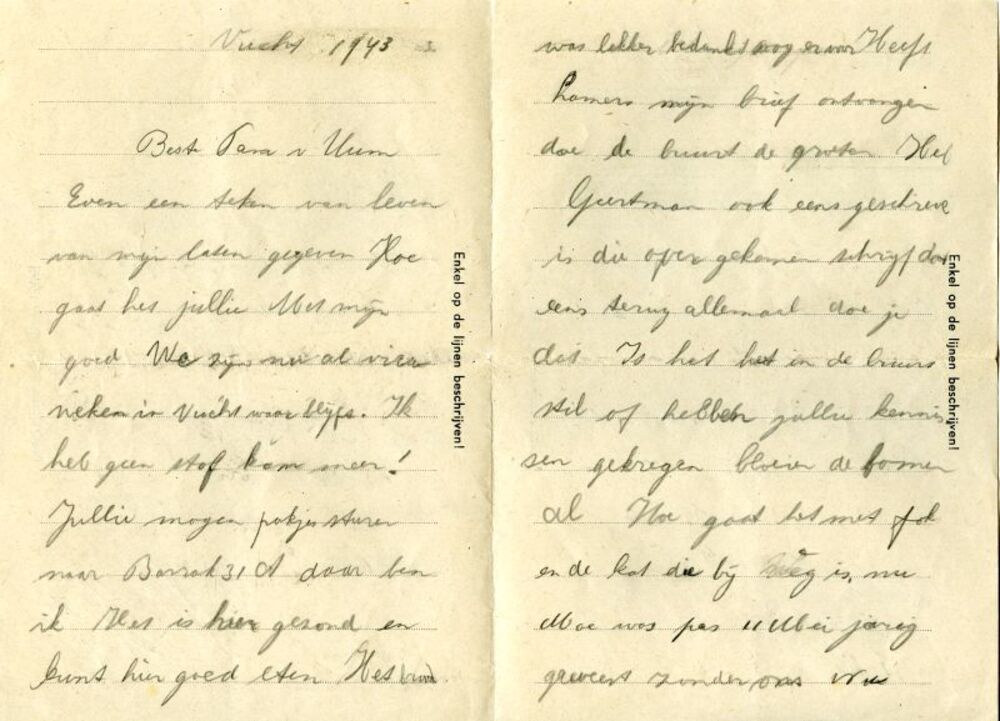 Vught 1943
Beste Fam v Uum
Even een teken van leven
van mijn laten gegeven Hoe
gaat het jullie Met mijn
goed We zijn nu al vier
weken in Vught waar blijft. Ik
heb geen stof kam meer!
Jullie mogen pakjes sturen
naar Barrak 31 A daar ben
ik Het is hier gezond en
kunt hier goed eten Het
Enkel op de lijnen beschrijven!
was lekker bedankt nog ervoor Heeft
Kamers mijn brief ontvangen
doe de buurt de groten Hef
Geertman ook eens geschreve
is die over gekomen schrijf dan
eens terug allemaal doe je
dat Is het het in de buurt
stil of hebben jullie kennis
sen gekregen bloeien de bomen
al Hoe gaat het met
en de kat die bij is, nu
Moe was pas 11 Mei jarig
geweest zonder ons
Enkel op de lijnen beschrijven!